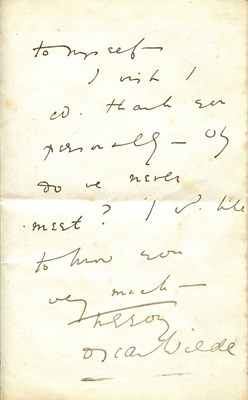 to myself —
I wish I
cd. thank you
personally — Why
do we never
meet? I wd. like
to know you
very much —
Oscar Wilde